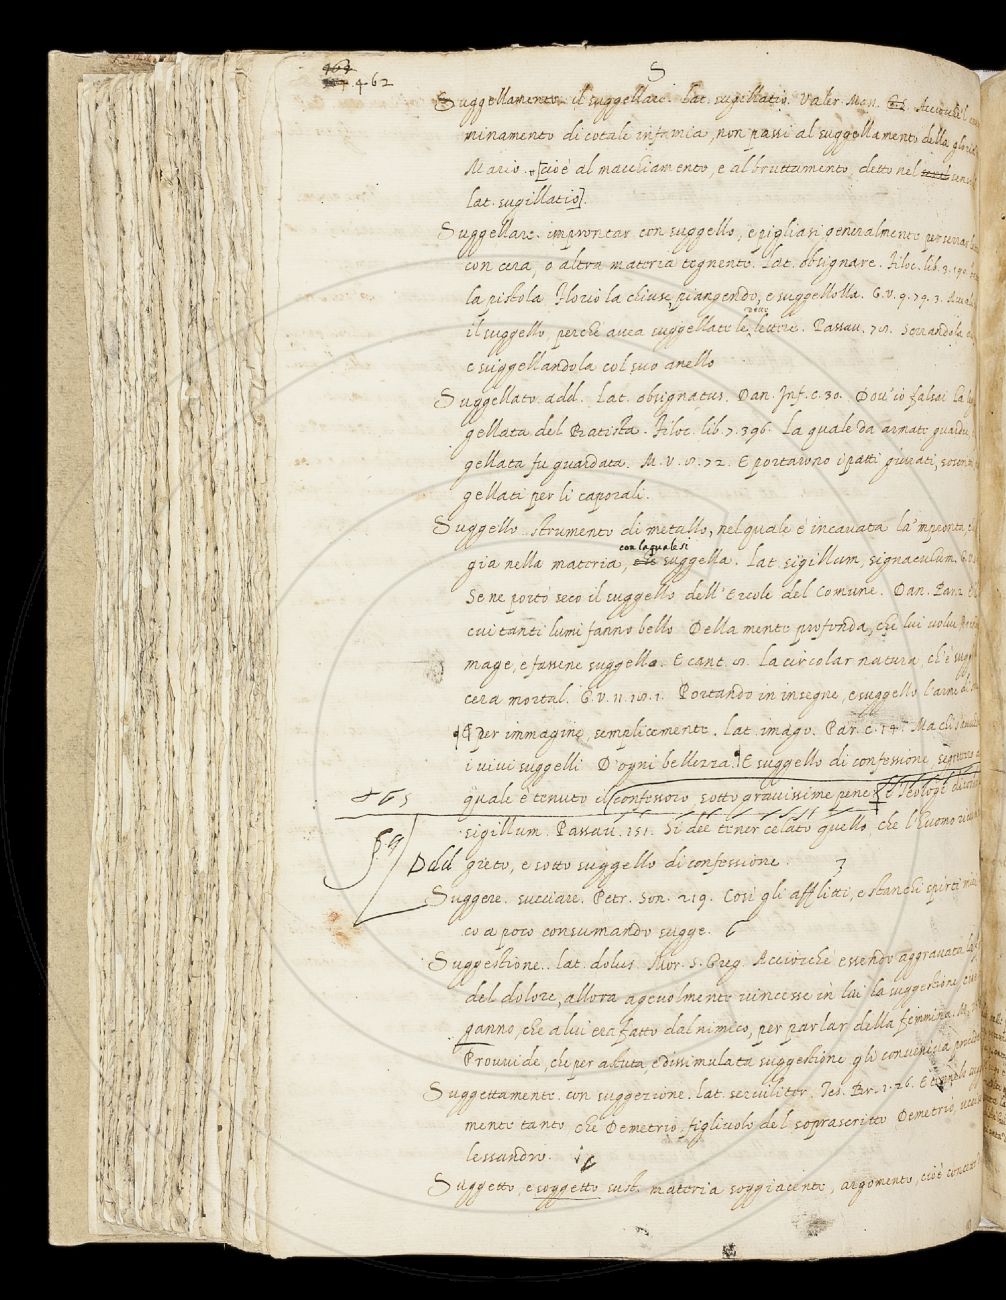 462
S
Suggellamento. il suggellare. lat. sugillatio. Valer. Mas. Acciocchè l
minamento di cotale infamia, non passi al suggellamento della gloria
Mario. [cioè al macchiamento, e al bruttamento, detto nel
lat. sugillatio].
Suggellare. improntar con suggello, e pigliasi generalmente per serrar
con cera, o altra materia tegnente. lat. obsignare. Filoc. lib. 3. 190.
la pistola Florio la chiuse, piangendo, e suggellolla. G. V. 9. 79. 3.
il suggello, perchè avea suggellate le dette lettere. Passav. Serrandola
e suggellandola col suo anello
Suggellato. add. lat. obsignatus. Dan. Inf. c. 30. Dov' io falsai la
gellata del Batista. Filoc. lib. 7. 396. La quale da armate guardie
gellata fu guardata. M. V. 72. E portarono i patti giurati,
gellati per li caporali.
Suggello. strumento di metallo, nel quale è incavata la 'mpronta,
gia nella materia, con la quale si suggella. lat. sigillum, signaculum. G. V.
Se ne portò seco il suggello dell' Ercole del Comune. Dan. Par. 2.
cui tanti lumi fanno bello Della mente profonda, che lui volve
mage, e fassene suggello. E cant. La circolar natura, ch' è
cera mortal. G. V. 11. Portando in insegne, e suggello l' arme
¶ per immagine, semplicemente. lat. imago. Par. c. 14. Ma chi
i vivi suggelli D' ogni bellezza. E suggello di confessione, segretezza
quale è tenuto il confessoro, sotto gravissime pene. E Teologi
sigillum. Passav. 151. Si dee tener celato quello, che l' huomo
Ddd greto, e sotto suggello di confessione.
Suggere. succiare. Petr. Son. 219. Così gli afflitti, e stanchi spirti miei
co a poco consumando sugge.
Suggestione. lat. dolus. Mor. S. Greg. Acciocchè essendo aggravata
del dolore, allora agevolmente vincesse in lui la suggestione,
ganno, che a lui era fatto dal nimico, per parlar della femmina. M.
Provvide, che per astuta, e dissimulata suggestione gli convenisse
Suggettamente. con suggezione. lat. serviliter. Tes. Br. 1. 26.
mente tanto che Demetrio, figliuolo del soprascritto Demetrio,
lessandro.
Suggetto, e soggetto sust. materia soggiacente, argomento, cioè